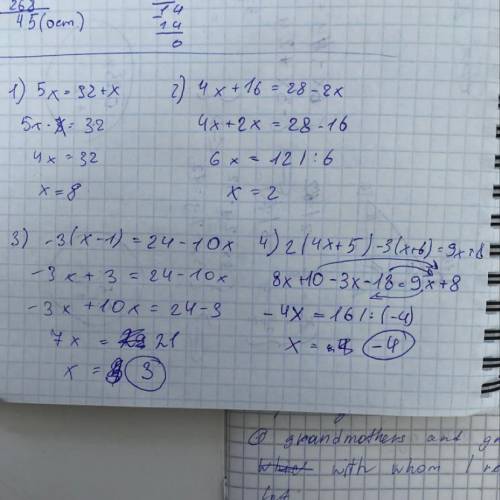 268
45(ост)
14
14
0
1) 5x = 32 + x
5x - x = 32
4x = 32
x = 8
2) 4x + 16 = 28 - 2x
4x + 2x = 28 - 16
6x = 12 | : 6
x = 2
3) -3(x - 1) = 24 - 10x
-3x + 3 = 24 - 10x
-3x + 10x = 24 - 3
7x = 21
x = 3
4) 2(4x + 5) - 3(x + 6) = 9x + 8
8x + 10 - 3x - 18 = 9x + 8
-4x = 16 | : (-4)
x = -4
grandmothers and
with whom I